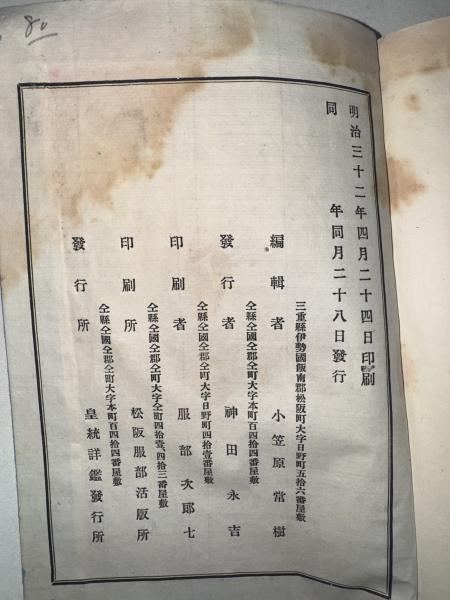 80
明治三十二年四月二十四日印刷
同年同月二十八日發行
三重縣伊勢國飯南郡松阪町大字日野町五拾六番屋敷
編輯者 小笠原常樹
仝縣仝國仝郡仝町大字本町百四拾四番屋敷
發行者 神田永吉
仝縣仝國仝郡仝町大字日野町四拾壹番屋敷
印刷者 服部次郎七
仝縣仝國仝郡仝町大字仝町四拾壹、四拾三番屋敷
印刷所 松阪服部活版所
仝縣仝國仝郡仝町大字本町百四拾四番屋敷
發行所 皇統詳鑑發行所